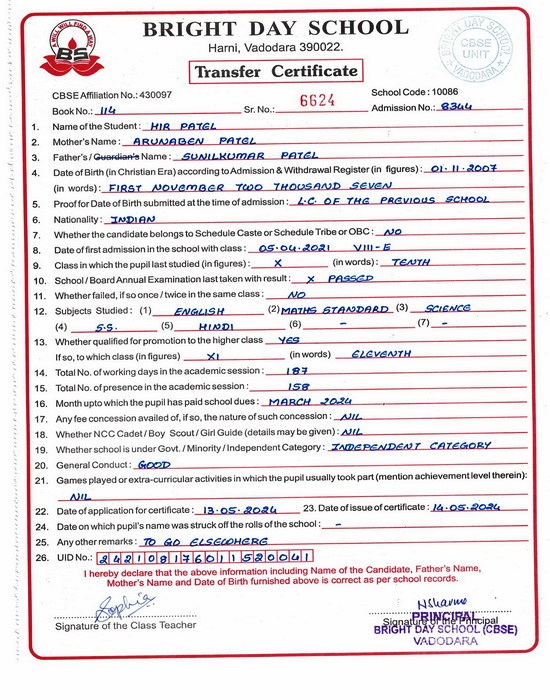 A WILL WILL FIND A WAY
BS
BRIGHT DAY SCHOOL
Harni, Vadodara 390022.
BRIGHT DAY SCHOOL
CBSE
UNIT
VADODARA
Transfer Certificate
CBSE Affiliation No.: 430097
School Code : 10086
Book No.: 114 Sr. No.: 6624 Admission No.: 8344
1. Name of the Student : HIR PATEL
2. Mother's Name : ARUNABEN PATEL
3. Father's / Guardian's Name : SUNILKUMAR PATEL
4. Date of Birth (in Christian Era) according to Admission & Withdrawal Register (in figures) : 01.11.2007
(in words) : FIRST NOVEMBER TWO THOUSAND SEVEN
5. Proof for Date of Birth submitted at the time of admission : L.C. OF THE PREVIOUS SCHOOL
6. Nationality : INDIAN
7. Whether the candidate belongs to Schedule Caste or Schedule Tribe or OBC : NO
8. Date of first admission in the school with class : 05.04.2021 VIII-E
9. Class in which the pupil last studied (in figures) : X (in words) : TENTH
10. School / Board Annual Examination last taken with result : X PASSED
11. Whether failed, if so once / twice in the same class : NO
12. Subjects Studied : (1) ENGLISH (2) MATHS STANDARD (3) SCIENCE
(4) S.S. (5) HINDI (6) - (7) -
13. Whether qualified for promotion to the higher class YES
If so, to which class (in figures) XI (in words) ELEVENTH
14. Total No. of working days in the academic session : 187
15. Total No. of presence in the academic session : 158
16. Month upto which the pupil has paid school dues : MARCH 2024
17. Any fee concession availed of, if so, the nature of such concession : NIL
18. Whether NCC Cadet / Boy Scout / Girl Guide (details may be given) : NIL
19. Whether school is under Govt. / Minority / Independent Category : INDEPENDENT CATEGORY
20. General Conduct : GOOD
21. Games played or extra-curricular activities in which the pupil usually took part (mention achievement level therein):
NIL
22. Date of application for certificate : 13.05.2024 23. Date of issue of certificate : 14.05.2024
24. Date on which pupil's name was struck off the rolls of the school : -
25. Any other remarks : TO GO ELSEWHERE
26. UID No.: 242108176011520041
I hereby declare that the above information including Name of the Candidate, Father's Name,
Mother's Name and Date of Birth furnished above is correct as per school records.
Sophia
NSharma
Signature of the Class Teacher
Signature of the Principal
PRINCIPAL
BRIGHT DAY SCHOOL (CBSE)
VADODARA